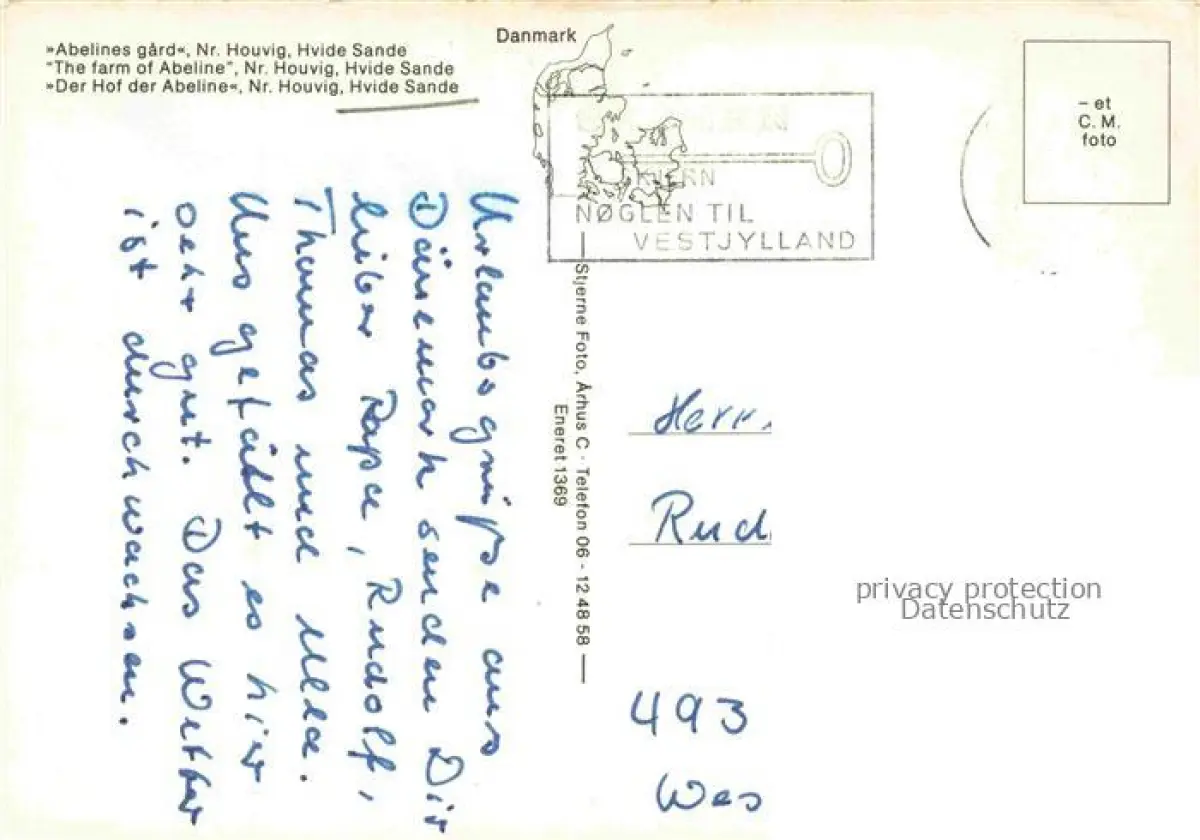 »Abelines gård«, Nr. Houvig, Hvide Sande
"The farm of Abeline", Nr. Houvig, Hvide Sande
»Der Hof der Abeline«, Nr. Houvig, Hvide Sande
Danmark
NØGLEN TIL
VESTJYLLAND
– et
C. M.
foto
Urlaubsgrüße aus
Dänemark senden Dir
lieber Papa, Rudolf,
Thomas und Ulla.
Uns gefällt es hier
sehr gut. Das Wetter
ist durchwachsen.
Stjerne Foto, Århus C · Telefon 06 - 12 48 58
Eneret 1369
Herr
Rud
privacy protection
Datenschutz
493
Wes